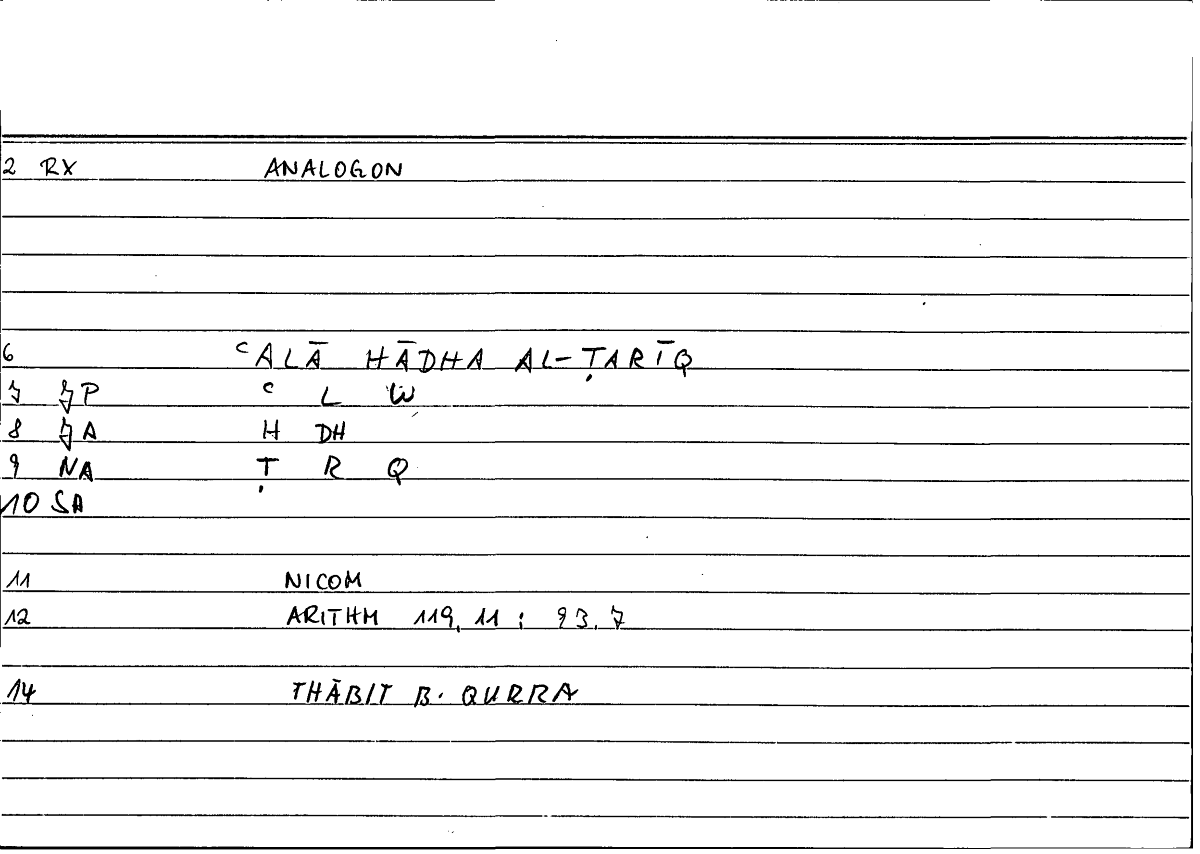 2 RX ANALOGON
6 ᶜALĀ HĀDHA AL-ṬARĪQ
7 JP ᶜ L W
8 JA H DH
9 NA Ṭ R Q
10 SA
11 NICOM
12 ARITHM 119, 11 : 93, 7
14 THĀBIT B. QURRA